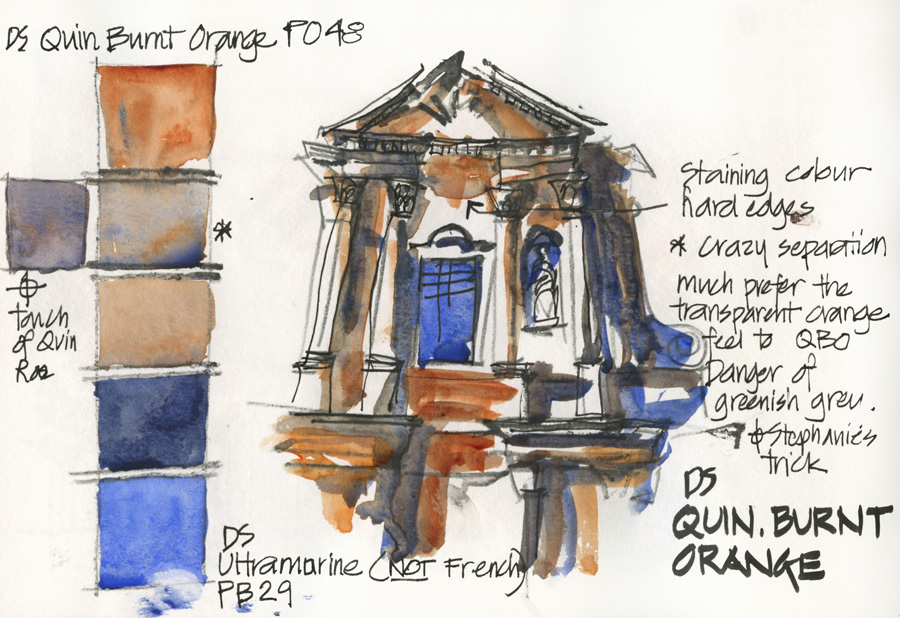 DS Quin Burnt Orange PO48
touch
of Quin
Rose
Staining colour
hard edges
* Crazy separation
much prefer the
transparent orange
feel to QBO
Danger of
greenish grey.
Stephanie's
trick
DS
QUIN. BURNT
ORANGE
DS
Ultramarine (NOT French)
PB29